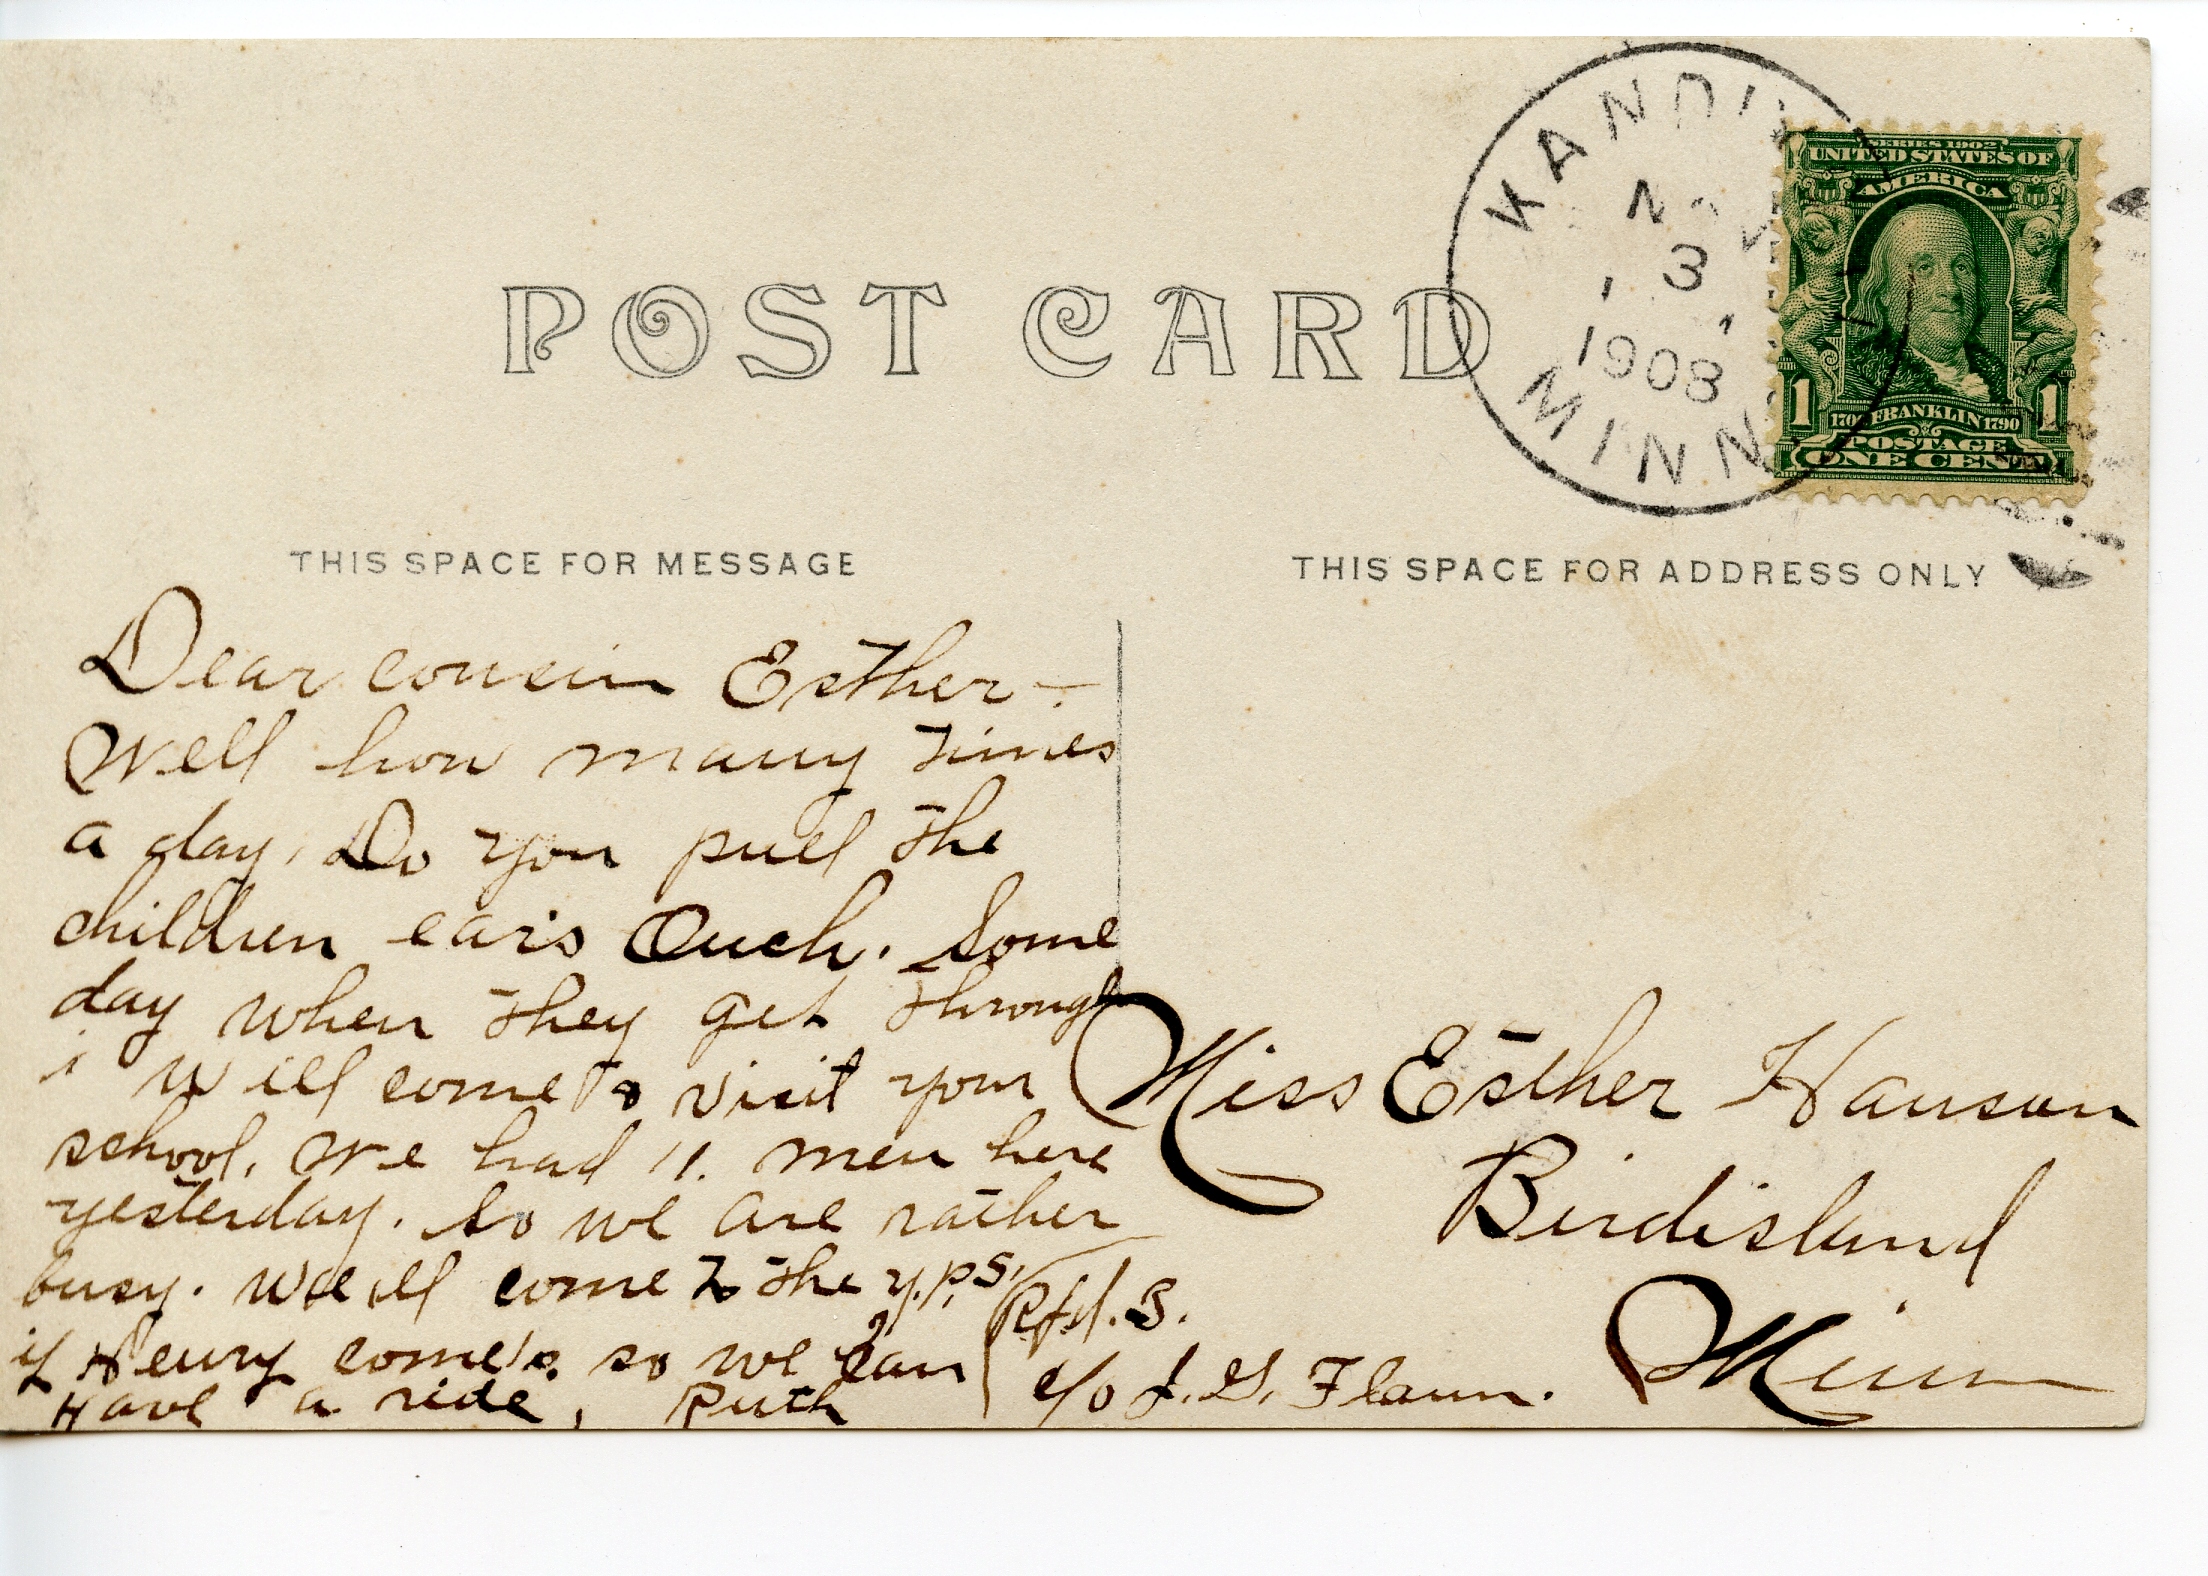 POST CARD
KANDIY
NOV
3
1908
MINN.
SERIES 1902
UNITED STATES OF
AMERICA
1 1
1706 FRANKLIN 1790
POSTAGE
ONE CENT
THIS SPACE FOR MESSAGE
Dear cousin Esther –.
Well how many times
a day, Do you pull the
children ears Ouch. Some
day when they get through
i will come to visit your
school. We had 11. men here
yesterday. So we are rather
busy. will come to the y.p.s.
if Henry comes. so we can
Have a ride, Ruth
THIS SPACE FOR ADDRESS ONLY
Miss Esther Hanson
Birdisland
Minn
Rfd. 3.
c/o J. G. Flann.